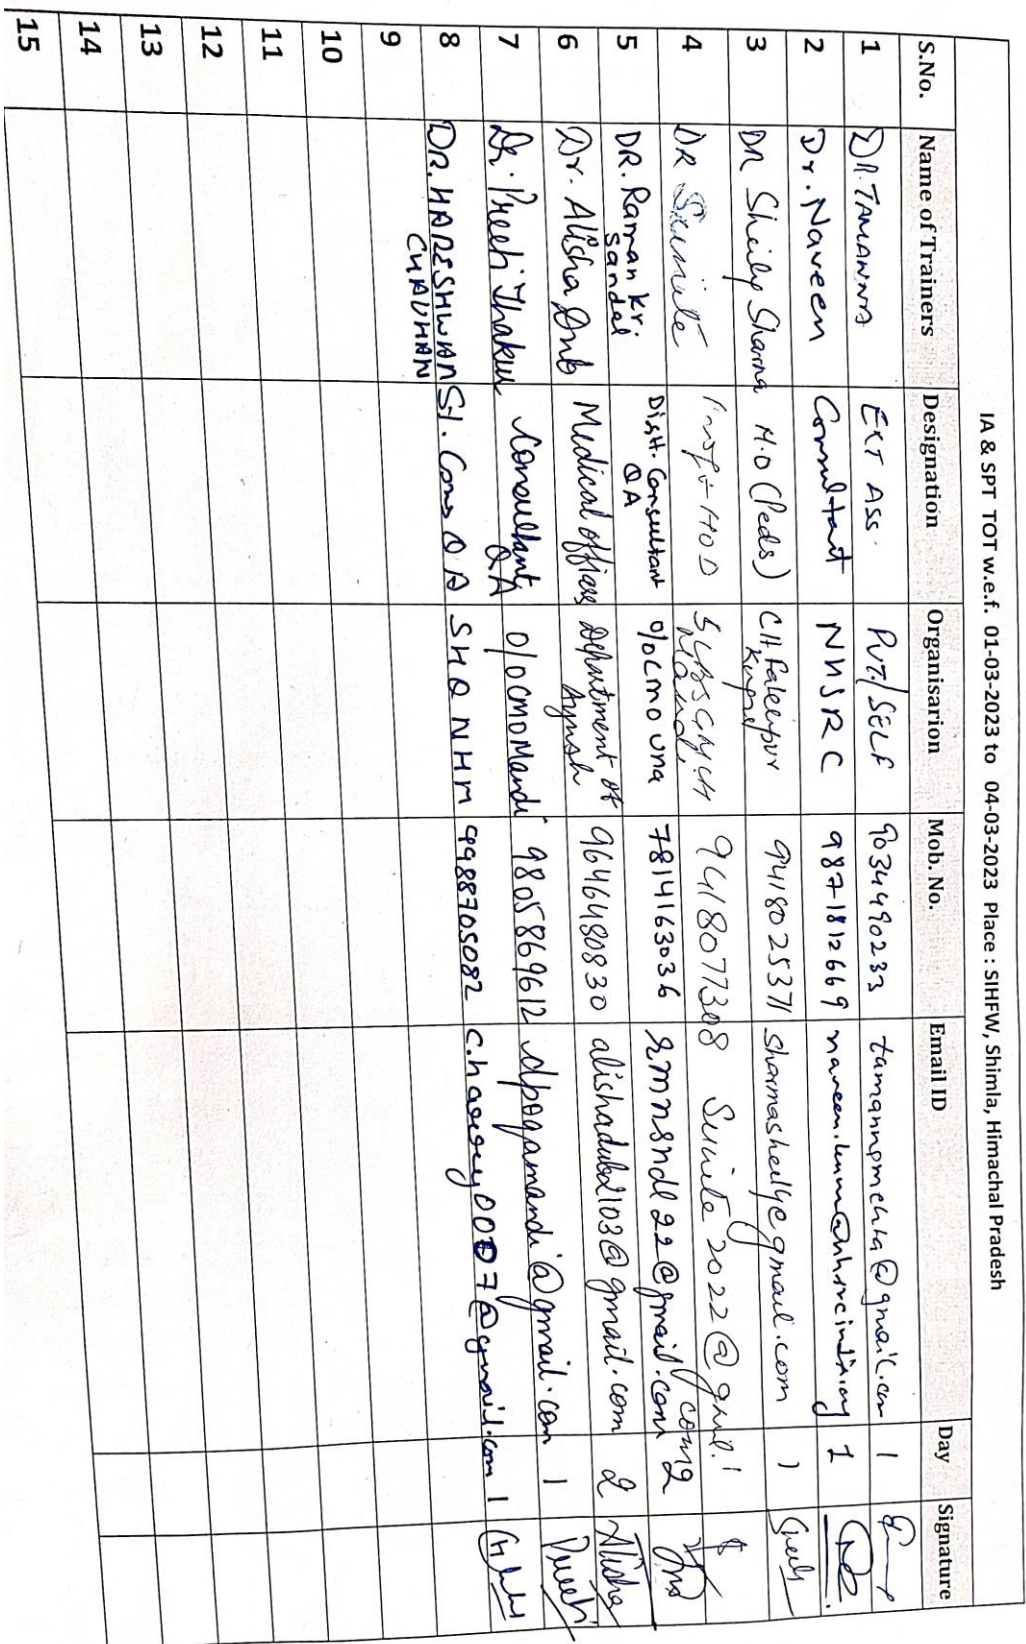 IA & SPT TOT w.e.f. 01-03-2023 to 04-03-2023 Place : SIHFW, Shimla, Himachal Pradesh
S.No. Name of Trainers Designation Organisarion Mob. No. Email ID Day Signature
1 DR. TAMANNA EXT ASS. PVT./SELF 9034490233 tamannamehta@gmail.com 1
2 Dr. Naveen Consultant NHSRC 9871812669 1
3 DR Sheily Sharma M.O (Peds) CH Fatehpur Kangra 9418025371 sharmasheily@gmail.com 1
4 DR Sunite HOD SLBSGMCH Mandi 9418077308 Sunite2022@gmail.com 1
5 DR. Raman Kr. Sandal Distt. Consultant QA O/o CMO Una 7814163036 rmnsndl22@gmail.com 2
6 Dr. Alisha Medical officer Department of Ayush 9646480830 2 Alisha
7 Dr. Preeti Thakur Consultant QA O/o CMO Mandi 9805869612 dpoqamandi@gmail.com 1 Preeti
8 DR. HARESHWAN CHAUHAN St. Cons QA SHQ NHM 9988705082 1
9
10
11
12
13
14
15